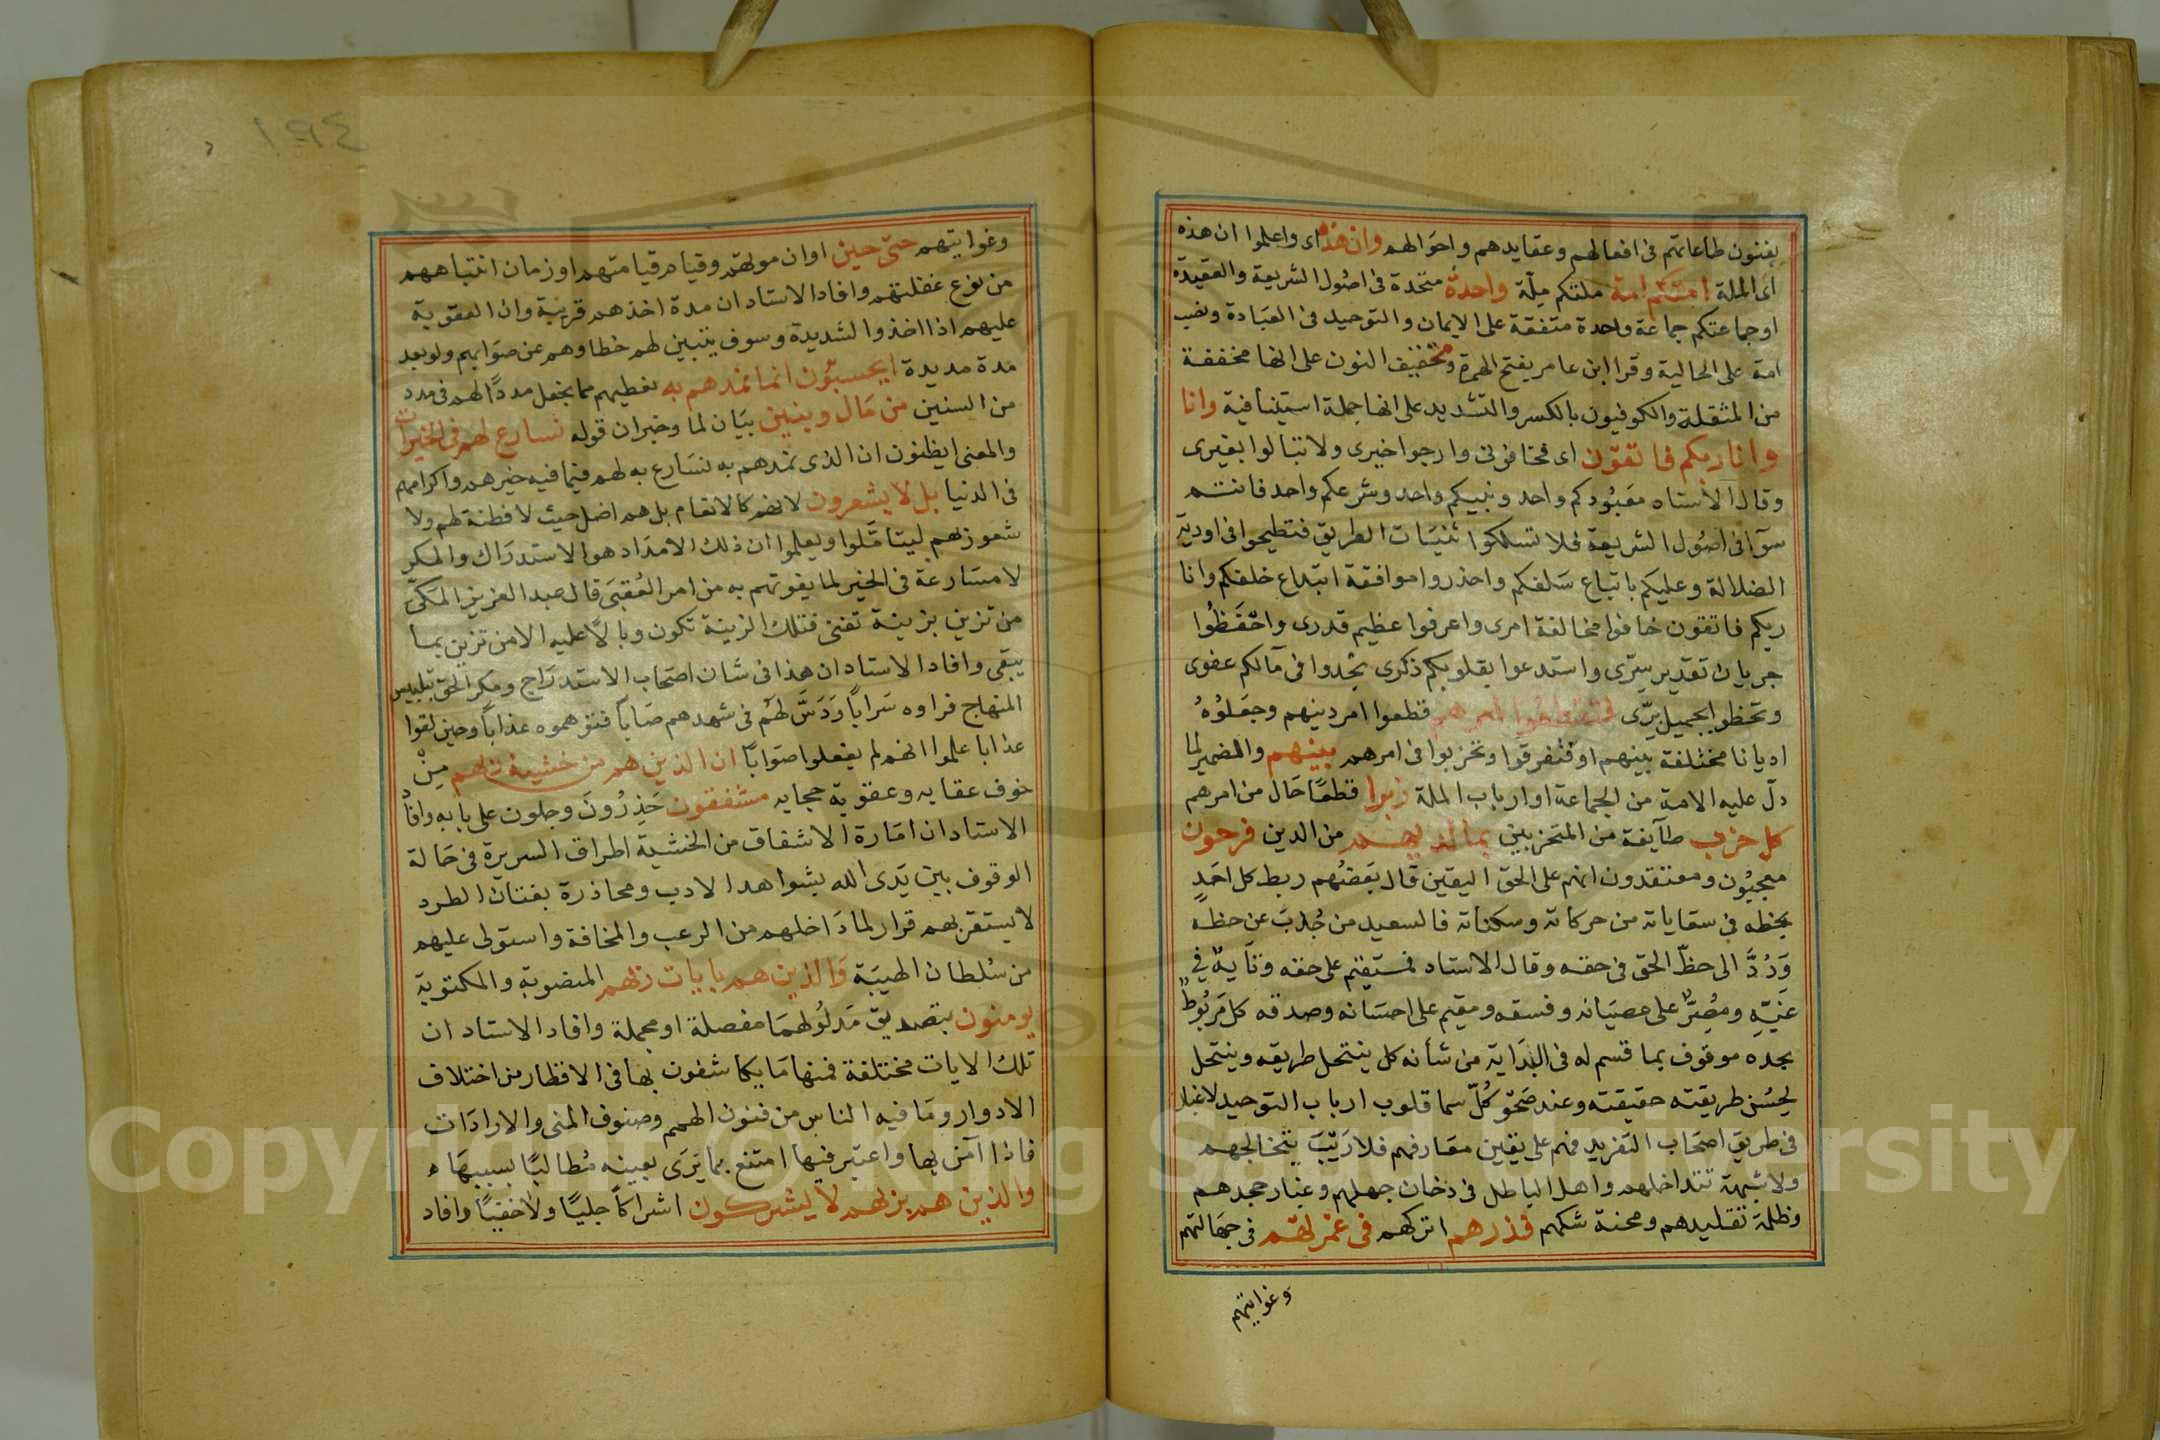 بفنون طاعاتهم فى افعالهم وعقايدهم واحوالهم وان هذه اى واعلموا ان هذه
اى الملة امتكم امة ملتكم ملّة واحدة متحدة فى اصول الشريعة والعقيدة
او جماعتكم جماعة واحدة متفقة على الايمان والتوحيد فى العبادة ونصب
امة على الحالية وقرا ابن عامر بفتح الهمزة وتخفيف النون على انها مخففة
من المثقلة والكوفيون بالكسر والتشديد على انها جملة استينافية وانا
وانا ربكم فاتقون اى فخافونى وارجوا خيرى ولا تبالوا بغيرى
وقال الاستاد معبودكم واحد ونبيكم واحد وشرعكم واحد فانتم
سوآ فى اصول الشريعة فلا تسلكوا ثنيات الطريق فتطيحوا فى اودية
الضلالة وعليكم باتباع سلفكم واحذروا موافقة ابتداع خلفكم وانا
ربكم فاتقون خافوا مخالفة امرى واعرفوا عظيم قدرى واحفظوا
جريان تقدير سرّى واستدعوا بقلوبكم ذكرى تجدوا فى مآلكم عفوى
وتحظوا بجميل برّى فتقطعوا امرهم فقطعوا امر دينهم وجعلوه
اديانا مختلفة بينهم او فتفرقوا وتحزبوا فى امرهم بينهم والضمير لما
دلّ عليه الامة من الجماعة او ارباب الملة زبرا قطعًا حال من امرهم
كل حزب طآيفة من المتحزبين بما لديهم من الدين فرحون
معجبون ومعتقدون انهم على الحق اليقين قال بعضهم ربط كل احدٍ
بحظه فى سقاياته من حركاته وسكناته فالسعيد من جُذب عن حظه
وَرُدَّ الى حظّ الحق فى حقه وقال الاستاد فمستقيم على حقه وتايه فى
غيّه ومُصِرٌّ على عصيانه وفسقه ومقيم على احسانه وصدقه كل مربوط
بحده موقوف بما قسم له فى البداية من شأنه كل ينتحل طريقه وينتحل
لحسن طريقته حقيقته وعند صَحْوِ كلّ سما قلوب ارباب التوحيد لا غبار
فى طريق اصحاب التفريد فهم على يقين معارفهم فلا رَيْبَ يتخالجهم
ولا شبهة تتداخلهم واهل الباطل فى دخان جهلهم وغبار جحدهم
وظلمة تقليدهم ومحنة شكهم فذرهم اتركهم فى غمرتهم فى جهالتهم
وغوايتهم
١٩٤
وغوايتهم حتى حين اوان موتهم وقيام قيامتهم او زمان انتباههم
من نوع غفلتهم وافاد الاستاد ان مدة اخذهم قريبة وان العقوبة
عليهم اذا اخذوا لشديدة وسوف يتبين لهم خطاوهم عن صوابهم ولو بعد
مدة مديدة ايحسبون انما نمدهم به نعطيهم مما يجعل مددًا لهم فى مدد
من السنين من مال وبنين بيان لما وخبر ان قوله نسارع لهم فى الخيرات
والمعنى ايظنون ان الذى نمدهم به نسارع به لهم فيما فيه خيرهم واكرامهم
فى الدنيا بل لا يشعرون لانهم كالانعام بل هم اضل حيث لا فطنة لهم ولا
شعور لهم ليتاملوا ويعلموا ان ذلك الامداد هو الاستدراك والمكر
لا مسارعة فى الخير لما يفوتهم به من امر العقبى قال عبد العزيز المكىّ
من تزين بزينة تفنى فتلك الزينة تكون وبالًا عليه الا من تزين بما
يبقى وافاد الاستاد ان هذا فى شان اصحاب الاستدراج ومكر الحق تلبيس
المنهاج فراوه سَراباً وَدَسَّ لهُم فى شهدهم صَاباً فتوهموه عذاباً وحين لقوا
عذابا علموا انهم لم يفعلوا صوابا ان الذين هم من خشية ربهم مِنْ
خوف عقابه وعقوبة حجابه مشفقون حَذِرُونَ وجلون على بابه وافاد
الاستاد ان امارة الاشفاق من الخشية اطراق السريرة فى حالة
الوقوف بين يَدى الله بشواهد الادب ومحاذرة بغتات الطرد
لا يستقر بهم قرار لما دَاخلهم من الرعب والمخافة واستولى عليهم
من سُلطان الهيبة والذين هم بايات ربهم المنصوبة والمكتوبة
يومنون بتصديق مَدلُولها مفصلة او مجملة وافاد الاستاد ان
تلك الايات مختلفة فمنها مَا يكاشفون بها فى الاقطار من اختلاف
الادوار ومَا فيه الناس من فنون الهمم وصنوف المنى والارادَات
فاذا آمن بها واعتبر فيها امتنع بما يَرى بعينه مُطالبًا بسببها
والذين هم بربهم لا يشركون اشراكاً جليًا ولا خفيًا وافاد
Copyright © King Saud University